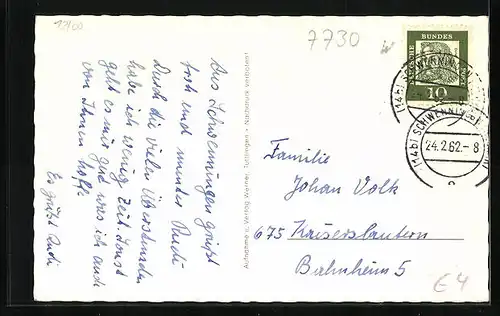 12/00
7730
Aus Schwenningen grüsst
froh und munter Rudi
Durch die vielen Überstunden
habe ich wenig Zeit. Sonst
geht es mir gut was ich auch
von Ihnen hoffe
Es grüßt Rudi
Aufnahme u. Verlag Werner, Tuttlingen • Nachdruck verboten!
DEUTSCHE BUNDES
10
(14b) SCHWENNINGEN
24.2.62-8
c
Familie
Johan Volk
675 Kaiserslautern
Bahnheim 5
€4